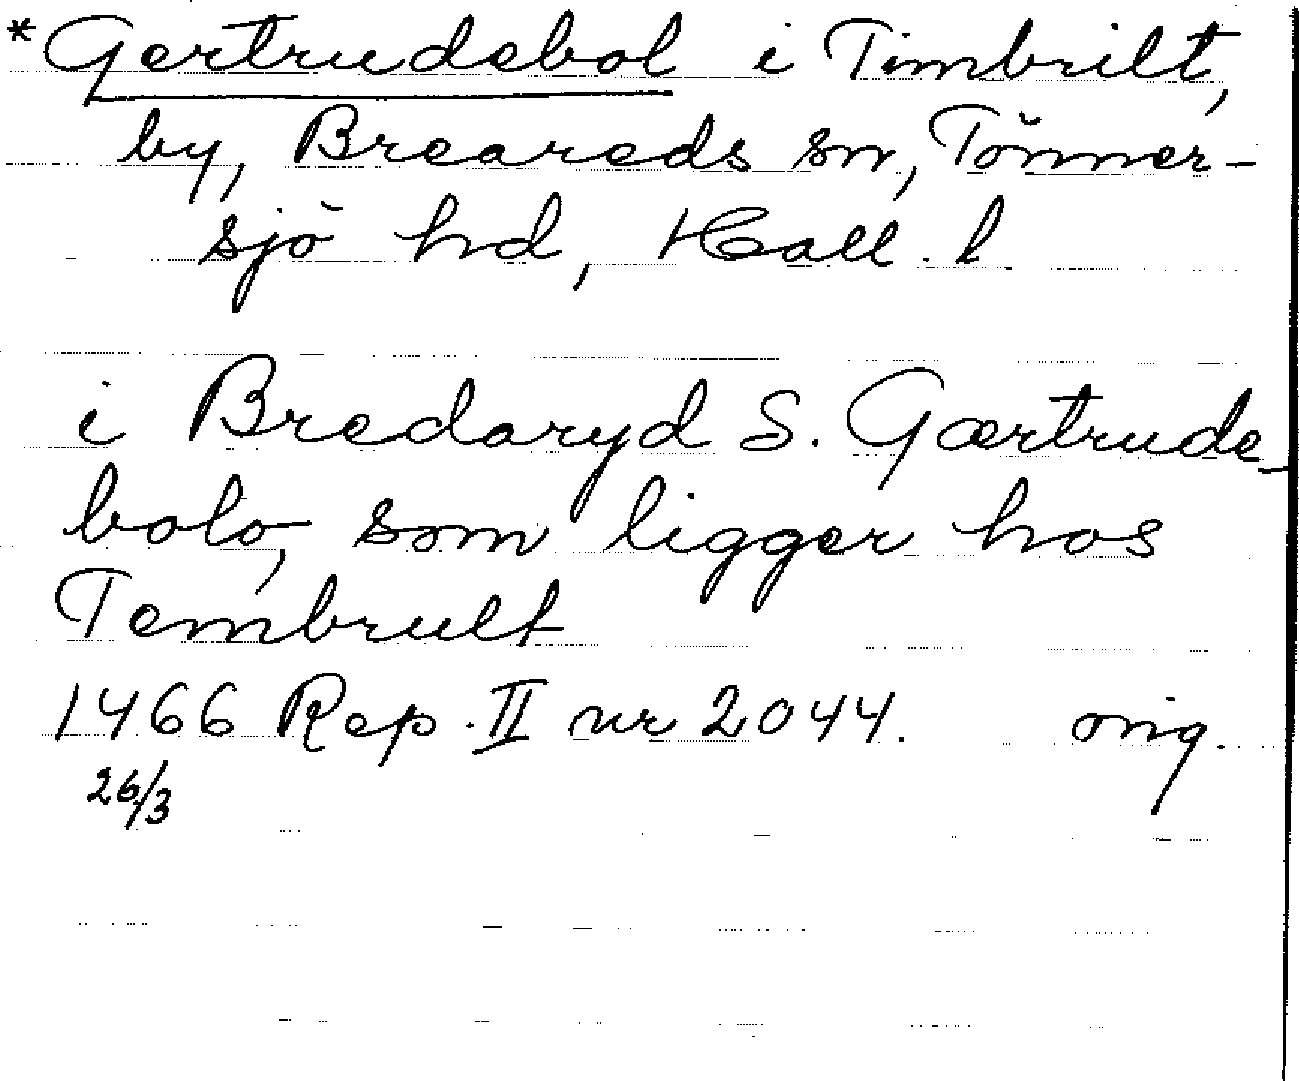 *Gertrudebol i Timbrilt,
by, Breareds sn, Tönner-
sjö hd, Hall. l
i Bredaryd S. Gærtrude-
bolo, som ligger hos
Tembrult
1466 Rep. II nr 2044. orig.
26/3